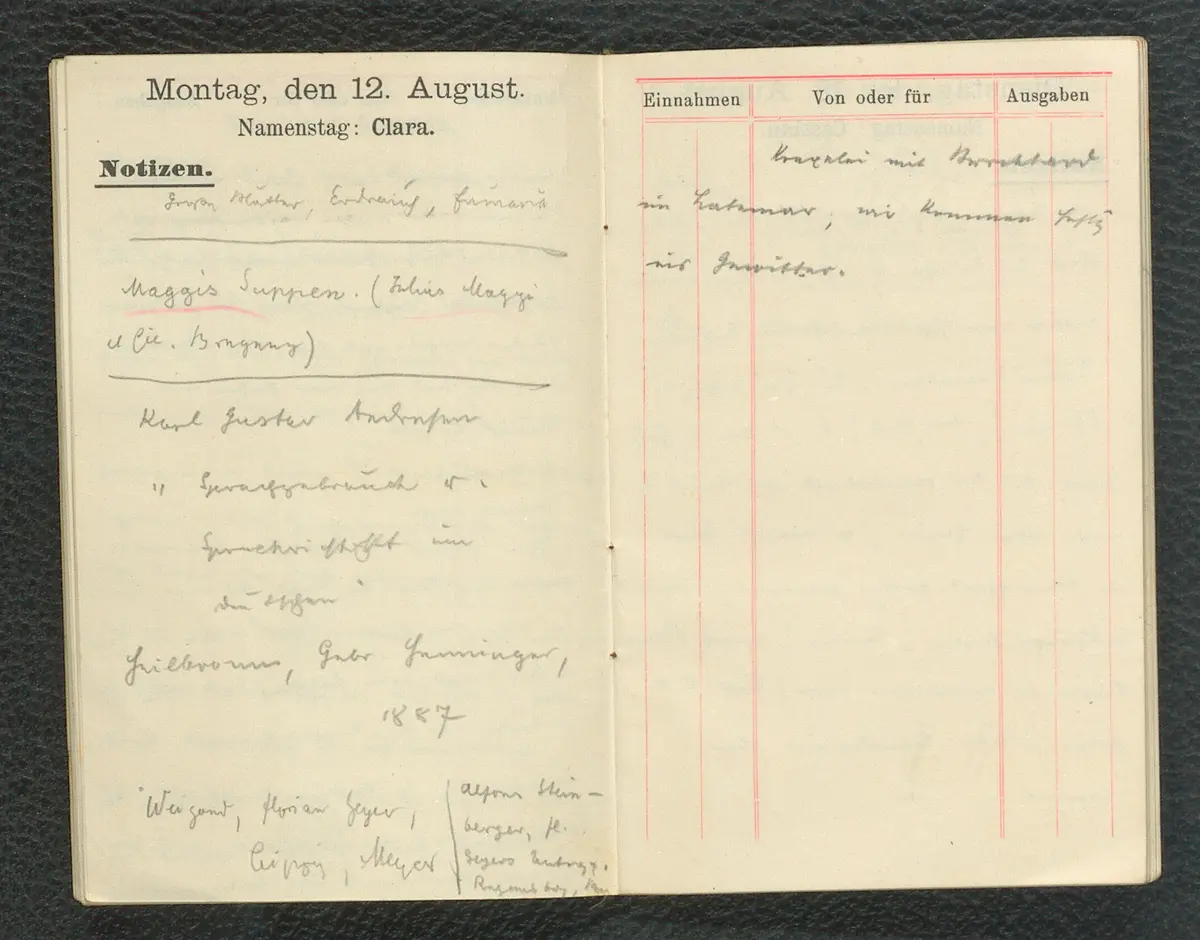 Montag, den 12. August.
Namenstag: Clara.
Notizen.
Blätter, Erdreich,
Maggis Suppen. (Julius Maggi
& Cie. Bregenz)
Karl Gustav Andresen
" Sprachgebrauch u.
Sprachrichtigkeit im
deutschen "
Heilbronn, Gebr Henninger,
1887
Weigand, Florian Geyer,
Leipzig, Meyer
Alfons Stein-
berger, Fl.
Geyers
Regensburg,
Einnahmen
Von oder für
Ausgaben
mit Burckhard
im Latemar, wir kommen
ins Gewitter.